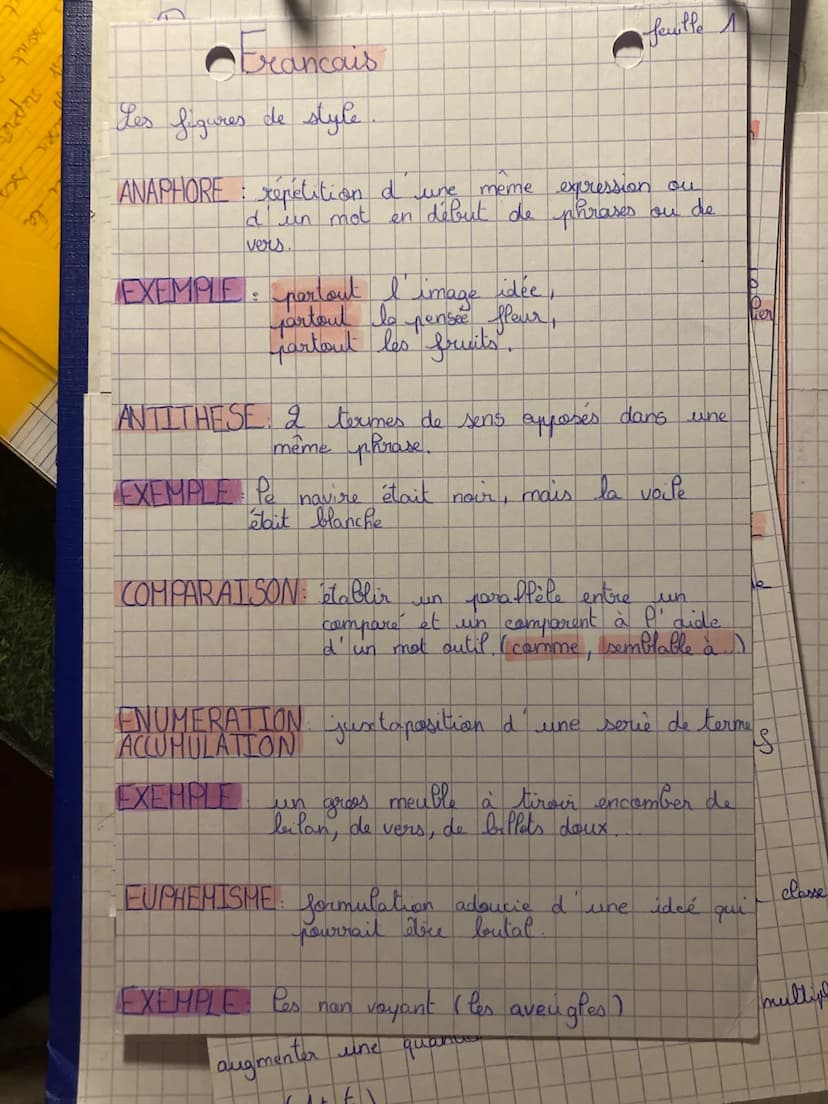 feuille 1
Francais
Les figures de style.
ANAPHORE : répétition d'une même expression ou
d'un mot en début de phrases ou de
vers.
EXEMPLE : partout l'image idée,
partout la pensée fleur,
partout les fruits.
ANTITHESE : 2 termes de sens opposés dans une
même phrase.
EXEMPLE : le navire était noir, mais la voile
était blanche
COMPARAISON : établir un parallèle entre un
comparé et un comparent à l'aide
d'un mot outil. (comme, semblable à..)
ENUMERATION : juxtaposition d'une serie de termes
ACCUMULATION
EXEMPLE : un gros meuble à tiroir encomber de
bilan, de vers, de billets doux...
EUPHEMISME : formulation adoucie d'une ideé qui
pourrait être brutal.
EXEMPLE : les non voyant (les aveugles)
classe
multipl
augmenter une